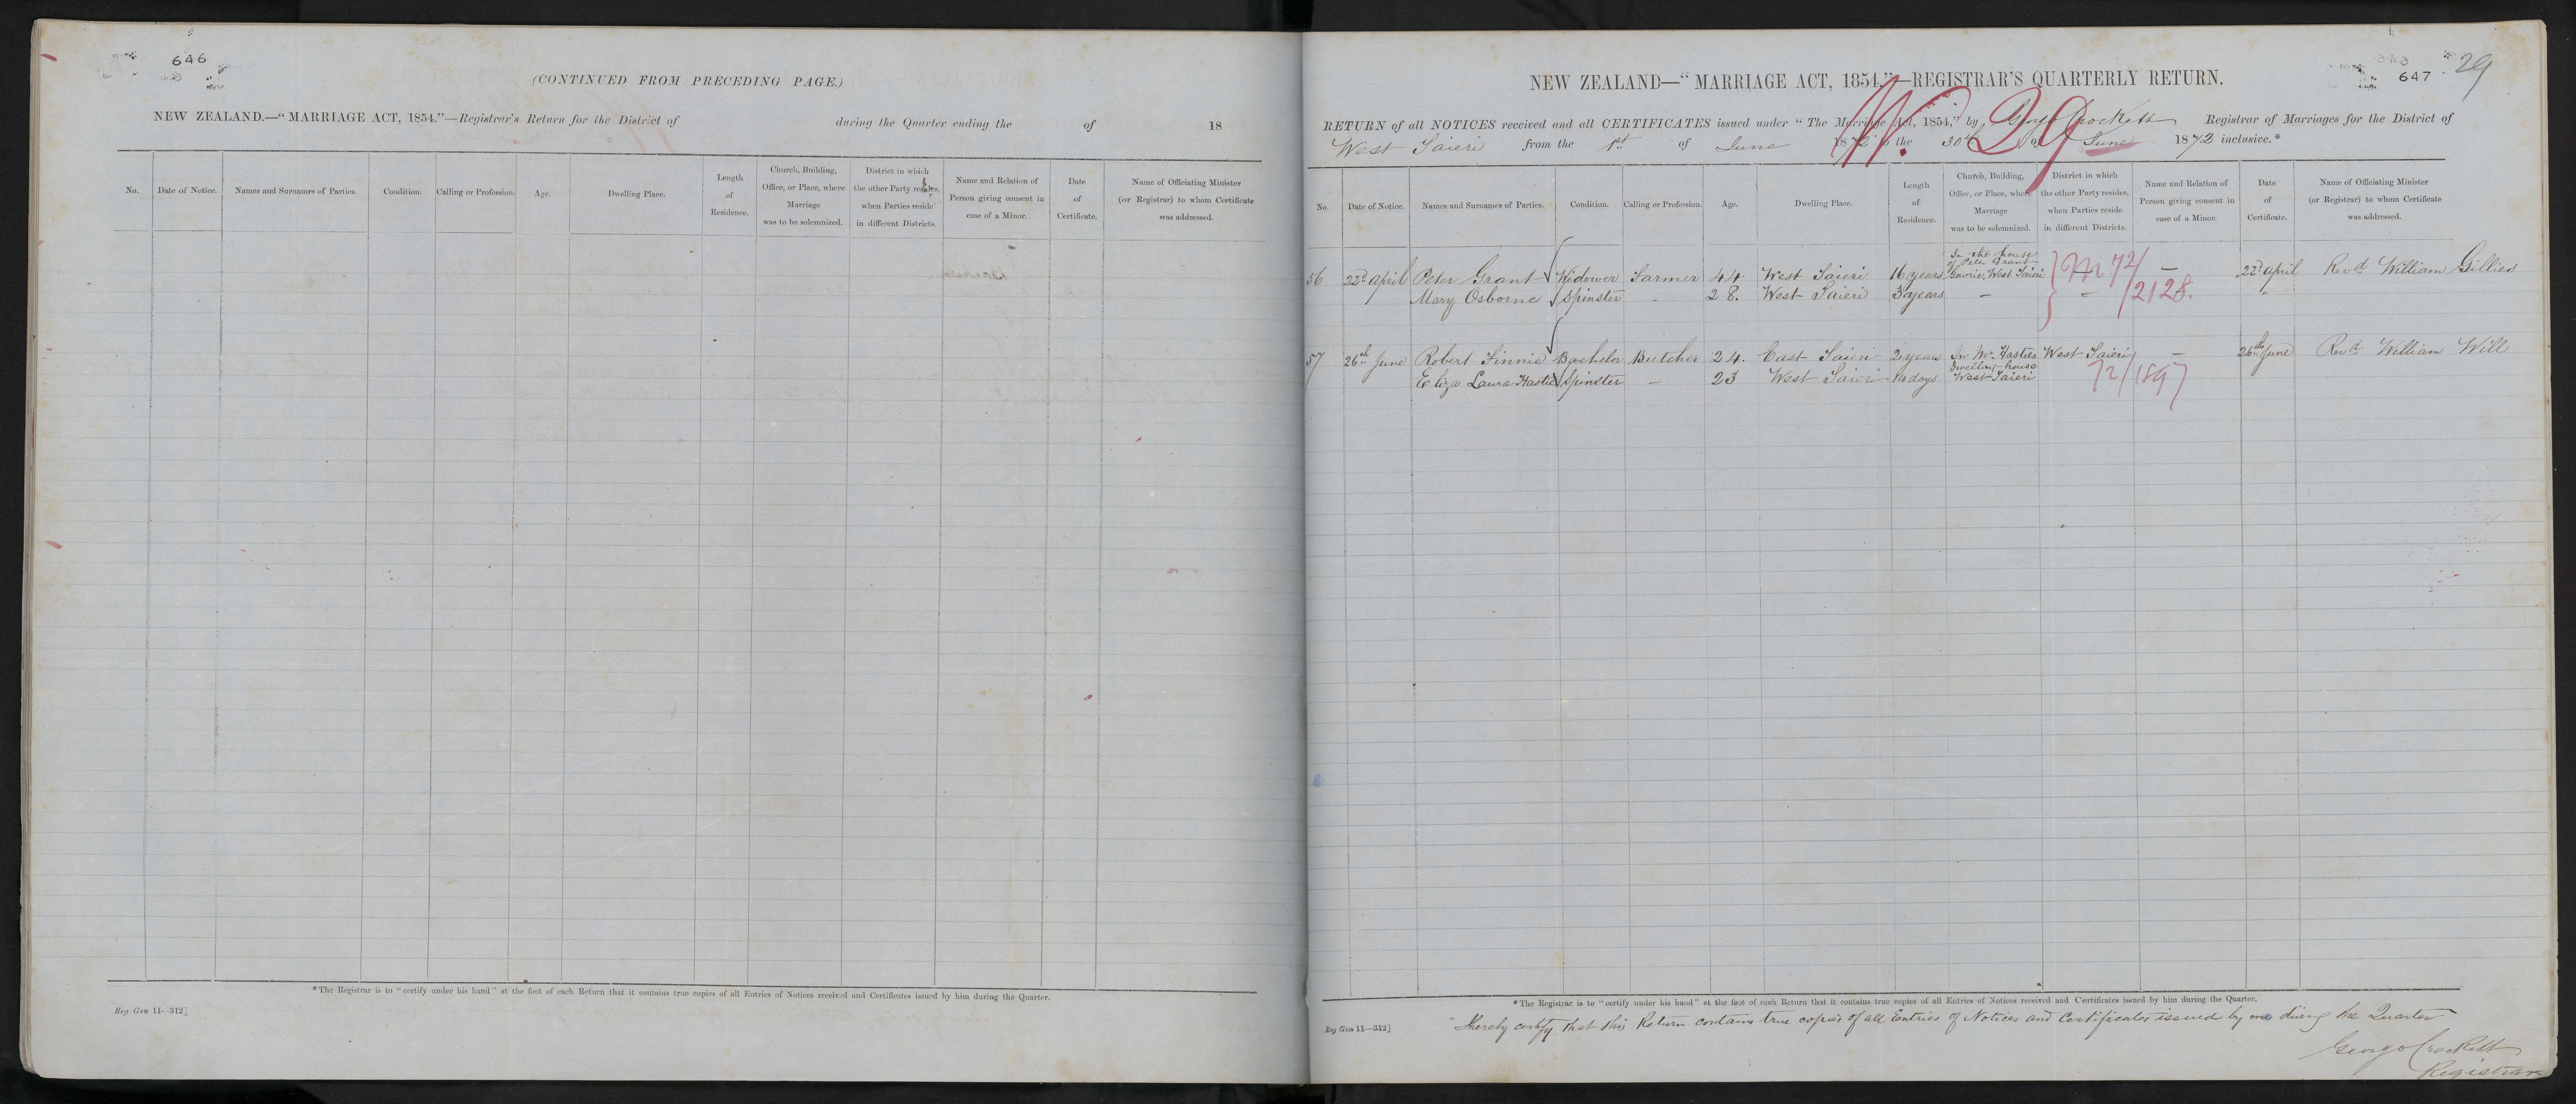 646
(CONTINUED FROM PRECEDING PAGE.)
NEW ZEALAND.—"MARRIAGE ACT, 1854."—Registrar's Return for the District of during the Quarter ending the of 18
No.
Date of Notice.
Names and Surnames of Parties.
Condition.
Calling or Profession.
Age.
Dwelling Place.
Length
of
Residence.
Church, Building,
Office, or Place, where
Marriage
was to be solemnized.
District in which
the other Party resides,
when Parties reside
in different Districts.
Name and Relation of
Person giving consent in
case of a Minor.
Date
of
Certificate.
Name of Officiating Minister
(or Registrar) to whom Certificate
was addressed.
*The Registrar is to "certify under his hand" at the foot of each Return that it contains true copies of all Entries of Notices received and Certificates issued by him during the Quarter.
Reg Gen 11—312]
647
29
NEW ZEALAND—"MARRIAGE ACT, 1854,"—REGISTRAR'S QUARTERLY RETURN.
29
RETURN of all NOTICES received and all CERTIFICATES issued under "The Marriage Act, 1854," by George Crockett Registrar of Marriages for the District of
West Taieri from the 1st of June 1872 to the 30th of June 1872 inclusive.*
No.
Date of Notice.
Names and Surnames of Parties.
Condition.
Calling or Profession.
Age.
Dwelling Place.
Length
of
Residence.
Church, Building,
Office, or Place, where
Marriage
was to be solemnized.
District in which
the other Party resides,
when Parties reside
in different Districts.
Name and Relation of
Person giving consent in
case of a Minor.
Date
of
Certificate.
Name of Officiating Minister
(or Registrar) to whom Certificate
was addressed.
56 22d April Peter Grant Widower Farmer 44 West Taieri 16 years In the house of Peter Grant Gowrie, West Taieri — — 22d April Revd William Gillies
Mary Osborne Spinster - 28. West Taieri 3 years — - "
M 72/2128.
57 26th June Robert Finnie Bachelor Butcher 24. East Taieri 2 years In Mr Hasties Dwelling-house West Taieri West Taieri — 26th June Revd William Will
Eliza Laura Hastie Spinster — 23 West Taieri 14 days
72/1897
*The Registrar is to "certify under his hand" at the foot of each Return that it contains true copies of all Entries of Notices received and Certificates issued by him during the Quarter.
Reg Gen 11—312]
I hereby certify that this Return contains true copies of all Entries of Notices and Certificates issued by me during the Quarter
George Crockett
Registrar